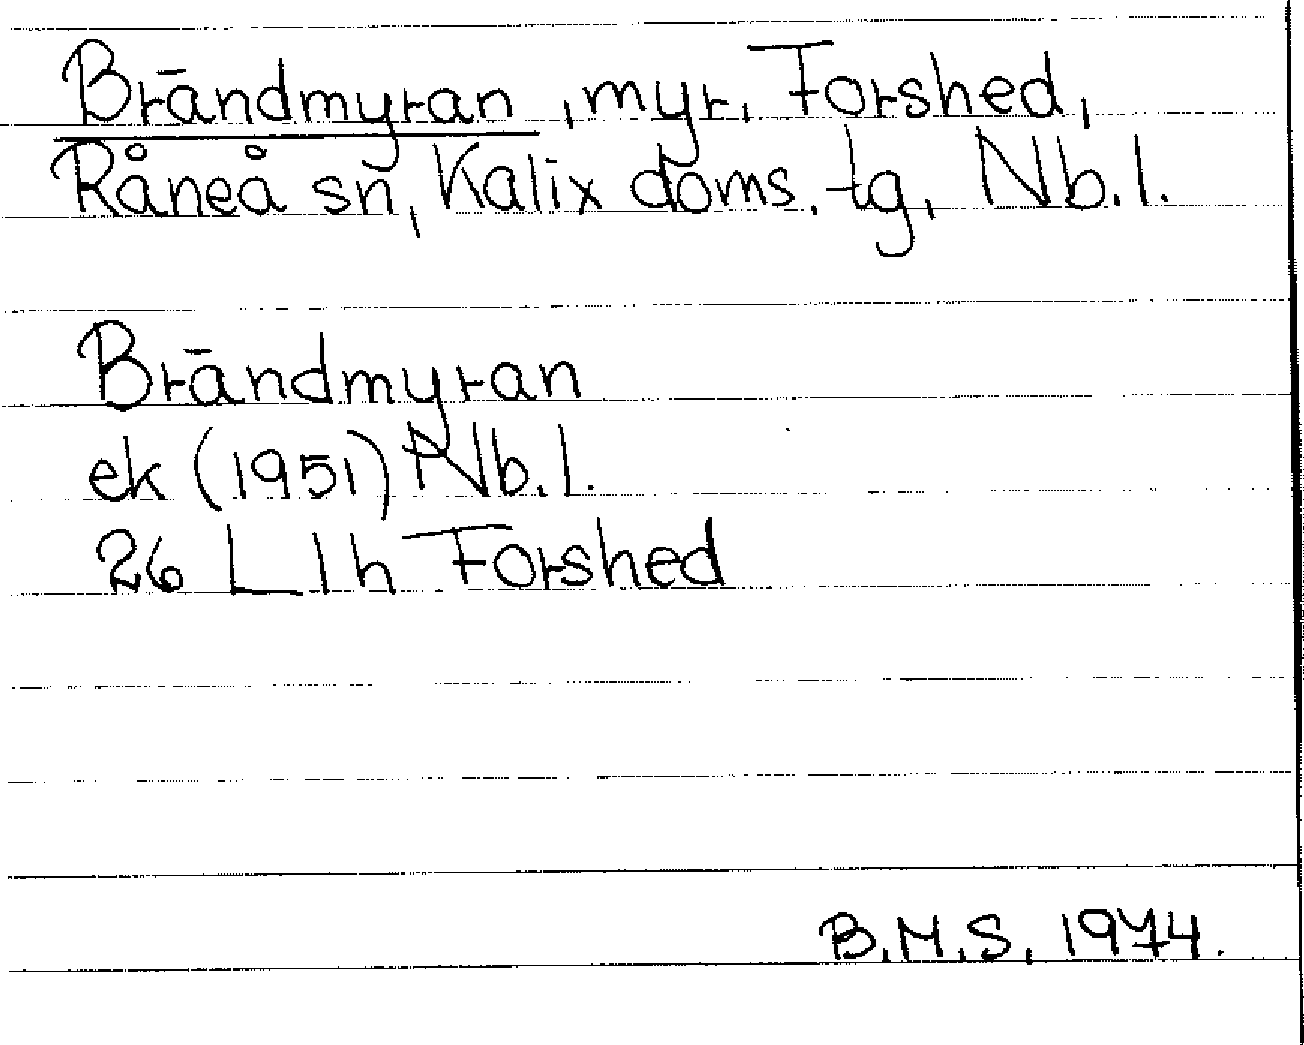 Brändmyran, myr, Forshed,
Råneå sn, Kalix doms. tg, Nb. l.
Brändmyran
ek (1951) Nb. l.
26 L 1 h Forshed
B.M.S, 1974.